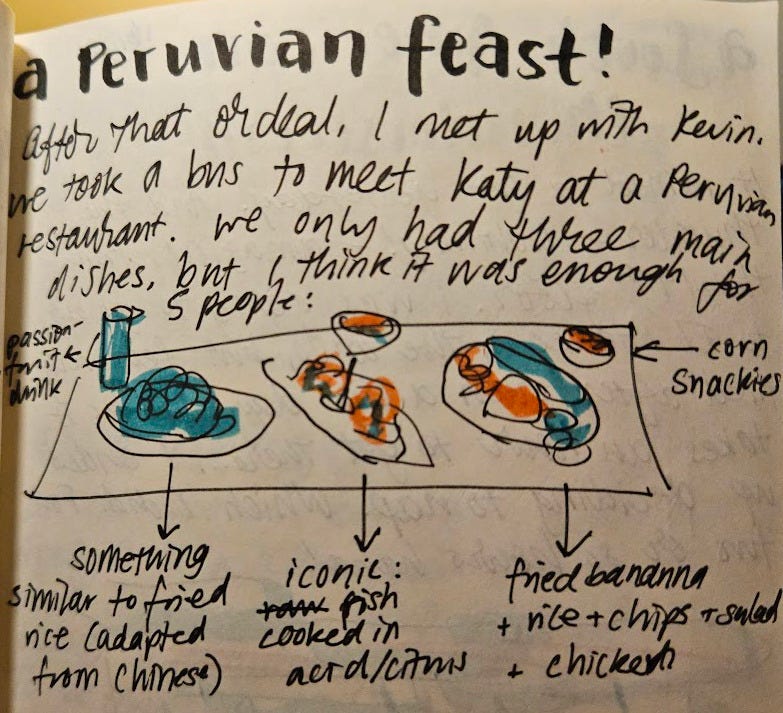 a Peruvian feast!
After that ordeal, I met up with Kevin.
we took a bus to meet Katy at a Peruvian
restaurant. we only had three main
dishes, but I think it was enough for
5 people:
passion-
fruit
drink
corn
snackies
something
similar to fried
rice (adapted
from Chinese)
iconic:
raw fish
cooked in
acid/citrus
fried bananna
+ rice + chips + salad
+ chicken